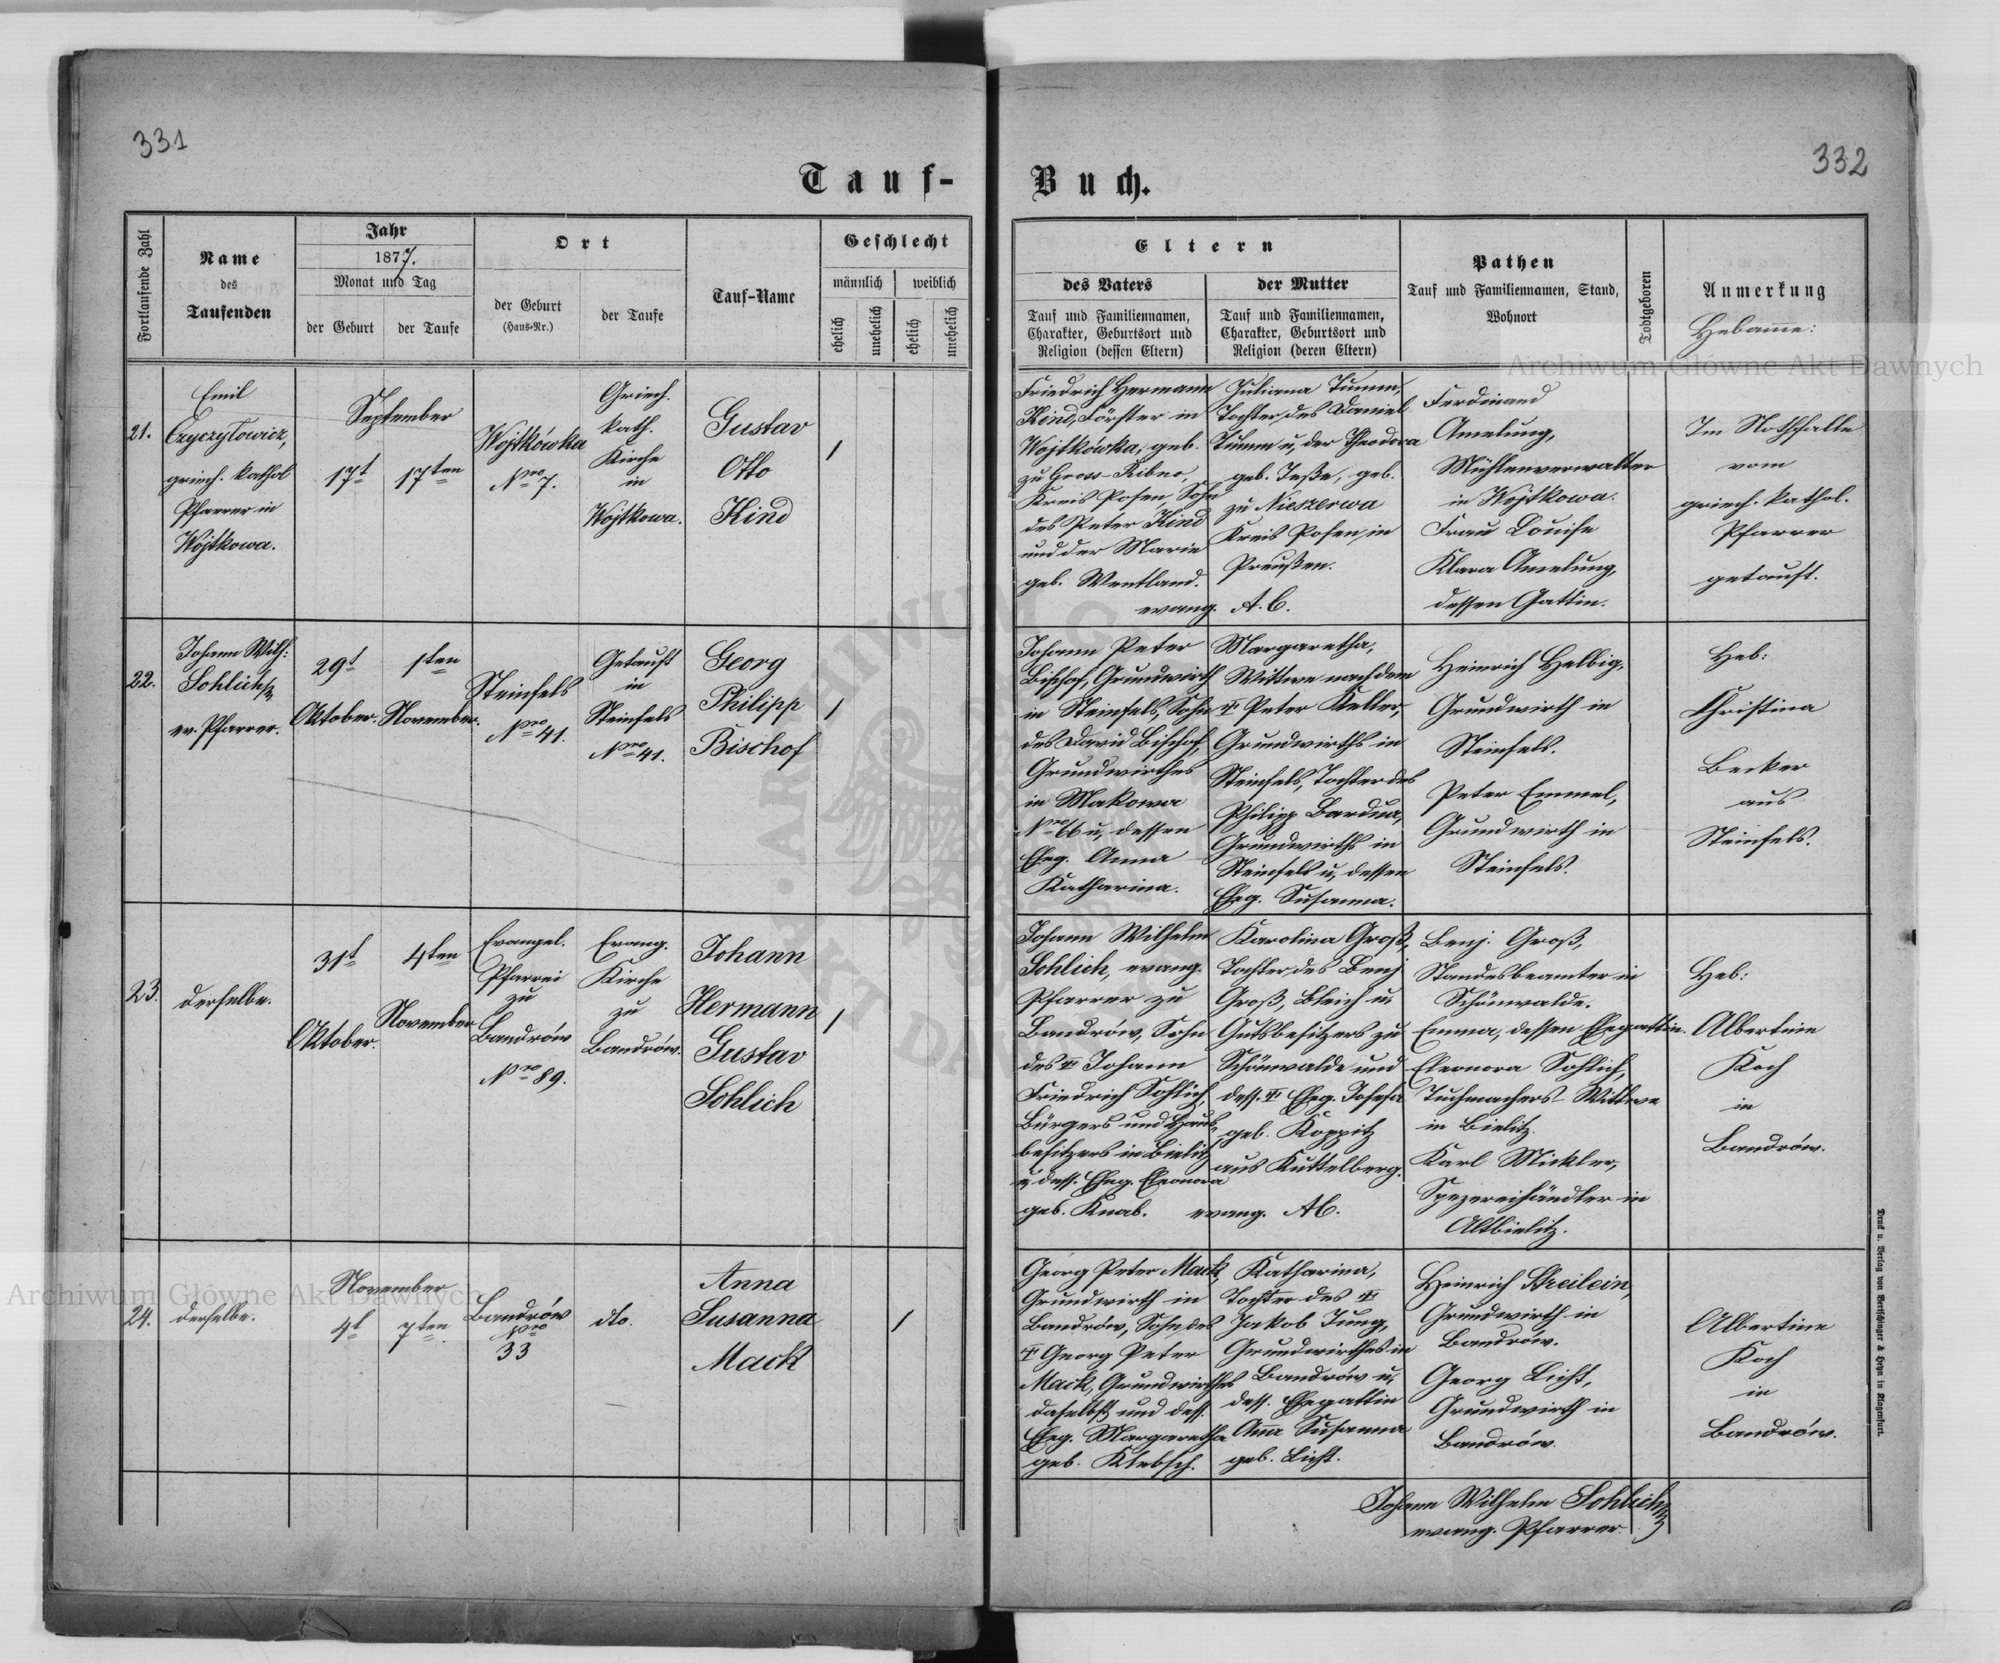 331
332
Tauf-
Buch.
Fortlaufende Zahl
Name
des
Taufenden
Jahr
1877.
Monat und Tag
der Geburt
der Taufe
Ort
der Geburt
(Haus-Nr.)
der Taufe
Tauf-Name
Geschlecht
männlich
weiblich
ehelich
unehelich
ehelich
unehelich
Eltern
des Vaters
Tauf und Familiennamen,
Charakter, Geburtsort und
Religion (dessen Eltern)
der Mutter
Tauf und Familiennamen,
Charakter, Geburtsort und
Religion (deren Eltern)
Pathen
Tauf und Familiennamen, Stand,
Wohnort
Todtgeboren
Anmerkung
Hebamme:
21.
Emil
Czyczylowicz,
griech. kathol
Pfarrer in
Wojtkowa.
September
17t
17ten
Wojtkówka
Nro 7.
Griech.
kath.
Kirche
in
Wojtkowa.
Gustav
Otto
Kind
1
Friedrich Hermann
Kind, Förster in
Wojtkówka, geb.
zu Gross-Ribno,
Kreis Posen, Sohn
des Peter Kind
und der Marie
geb. Wentland.
evang. A. C.
Juliana Tumm,
Tochter des Daniel
Tumm u, der Theodora
geb. Teße, geb.
zu Nieszerwa
Kreis Posen, in
Preußen.
Ferdinand
Amelung,
Mühlenverwalter
in Wojtkowa.
Frau Louise
Klara Amelung,
dessen Gattin.
Im Nothfalle
vom
griech. kathol.
Pfarrer
getauft.
22.
Johann Wilh:
Sohlich
ev. Pfarrer.
29t
Oktober.
1ten
November.
Steinfels
Nro 41.
Getauft
in
Steinfels
Nro 41.
Georg
Philipp
Bischof
1
Johann Peter
Bischof, Grundwirth
in Steinfels, Sohn
des David Bischof,
Grundwirthes
in Makowa
Nro 66 u, dessen
Eheg. Anna
Katharina.
Margaretha,
Wittwe nach dem
Peter Keller,
Grundwirths in
Steinfels, Tochter des
Philipp Bardua,
Grundwirths in
Steinfels u, dessen
Eheg. Susanna.
Heinrich Helbig,
Grundwirth in
Steinfels.
Peter Emmel,
Grundwirth in
Steinfels.
Heb:
Christina
Becker
aus
Steinfels.
23.
derselbe.
31t
Oktober.
4ten
November
Evangel.
Pfarrei
zu
Bandrów
Nro 89.
Evang.
Kirche
zu
Bandrów.
Johann
Hermann
Gustav
Sohlich
1
Johann Wilhelm
Sohlich, evang.
Pfarrer zu
Bandrów, Sohn
des Johann
Friedrich Sohlich,
Bürgers und Haus-
besitzers in Bielitz
u, dess. Eheg. Eleonora
geb. Knab.
evang. AC.
Karolina Groß,
Tochter des Benj
Groß, Bleich u,
Gutsbesitzers zu
Schönwalde und
dess. Eheg. Josefa
geb. Koppitz
aus Kuttelberg.
Benj. Groß,
Standesbeamter in
Schönwalde.
Emma, dessen Ehegattin.
Eleonora Sohlich,
Tuchmachers-Wittwe
in Bielitz.
Karl Mickler,
Spezereihändler in
Altbielitz.
Heb:
Albertine
Koch
in
Bandrów.
24.
derselbe.
November
4t
7ten
Bandrów
Nro
33
dto.
Anna
Susanna
Mack
1
Georg Peter Mack,
Grundwirth in
Bandrów, Sohn des
Georg Peter
Mack, Grundwirthes
daselbst und dess.
Eheg. Margaretha
geb. Klebsch.
Katharina,
Tochter des
Jakob Jung,
Grundwirthes in
Bandrów u,
dess. Ehegattin
Anna Susanna
geb. Licht.
Heinrich
Grundwirth in
Bandrów.
Georg Licht,
Grundwirth in
Bandrów.
Albertine
Koch
in
Bandrów.
Johann Wilhelm Sohlich
evang. Pfarrer.
Druck u. Verlag von Bertschinger & Heyn in Klagenfurt.
Archiwum Główne Akt Dawnych
Archiwum Główne Akt Dawnych